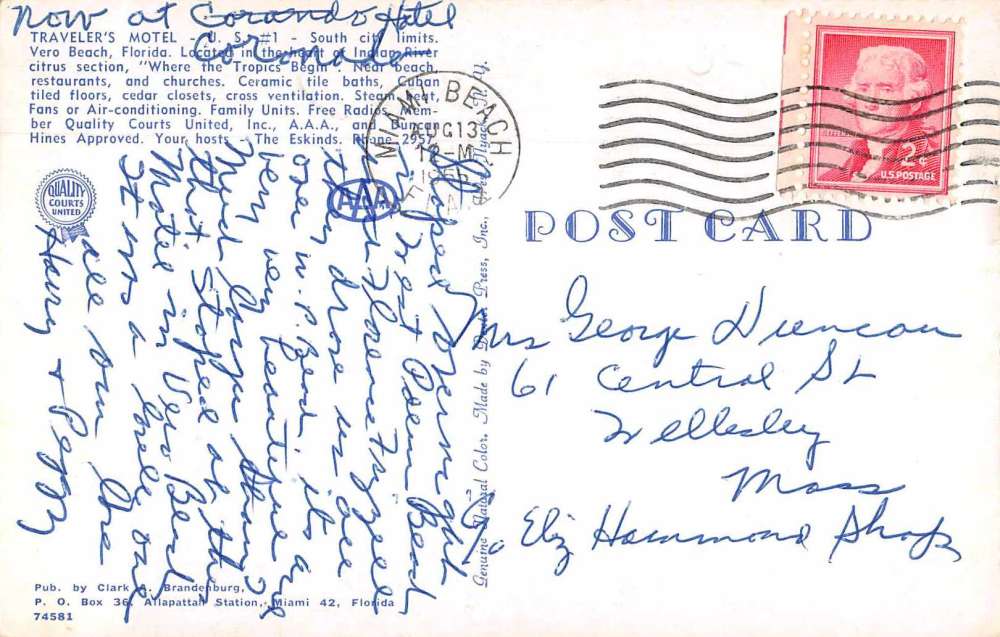 now at Corando Hotel
Coronado
TRAVELER'S MOTEL - U. S. #1 - South city limits.
Vero Beach, Florida. Located in the heart of Indian River
citrus section, "Where the Tropics Begin". Near beach,
restaurants, and churches. Ceramic tile baths, Cuban
tiled floors, cedar closets, cross ventilation. Steam heat,
Fans or Air-conditioning. Family Units. Free Radios. Mem-
ber Quality Courts United, Inc., A.A.A., and Duncan
Hines Approved. Your hosts - The Eskinds. Phone 2957.
QUALITY
COURTS
UNITED
AAA
MIAMI BEACH
AUG 13
12-M
2¢
U.S. POSTAGE
POST CARD
Stoped overnight
in West Palm Beach
with Florence
they drove us
over W.P. Beach its
very very beautiful are
Much larger than
that. Stoped at the
Motel in Vero Beach
It was a lovely one
Harry + Peggy
Genuine Natural Color. Made by Dexter Press, Inc., West Nyack, N. Y.
Mrs George Duncan
61 Central St
Wellesley
Mass
c/o Eliz Hammond Shop
Pub. by Clark A. Brandenburg,
P. O. Box 36, Allapattah Station, Miami 42, Florida
74581